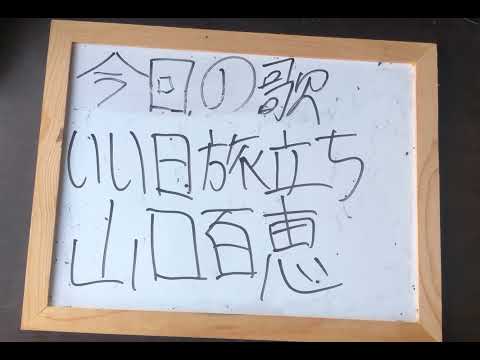 今回の歌
いい日旅立ち
山口百恵